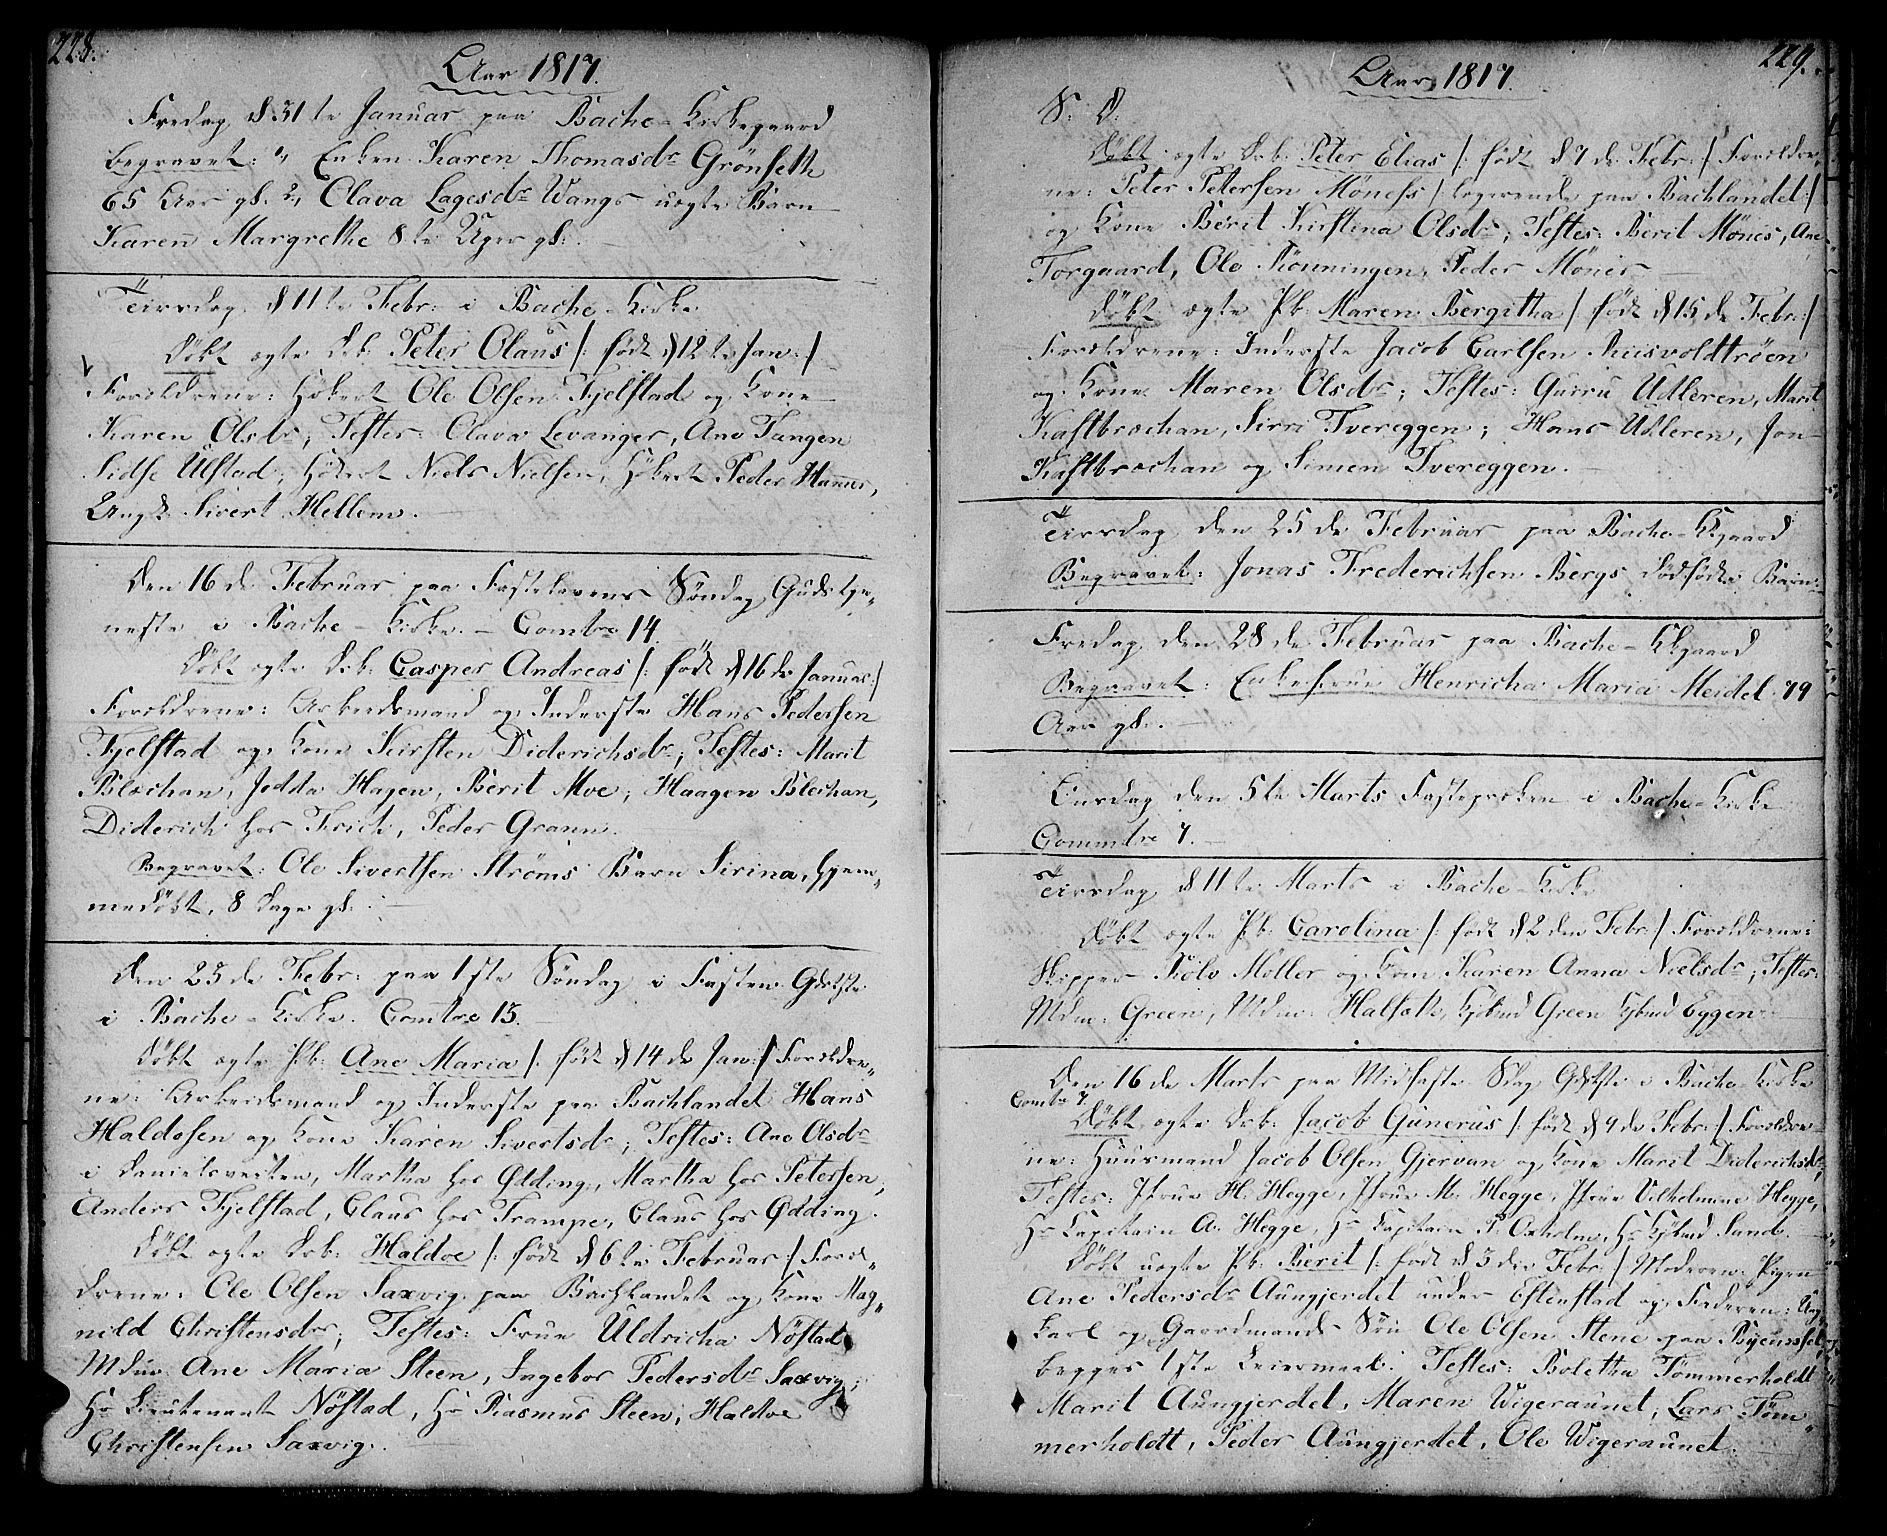 228.
Aar 1817.
Fredag d 31te Januar paa Bache-Kirkegaard
begravet: 1, Enken Karen Thomasdr Grönseth
65 Aar gl. 2, Olava Lagesdr Wangs uægte Barn
Karen Margrethe 8te Uger gl:
Tiirsdag d 11te Febr: i Bache-Kirke
Döbt ægte Drb: Peter Olaus /: födt d 12te Jan: /
Forældrene: Hökert Ole Olsen Fjelstad og Kone
Karen Olsdr; Testes: Olava Levanger, Ane Tangen
Sidse Ulstad; Hökert Niels Nielsen, Hökert Peder Hammer,
Ungk. Sivert Hellem.
Den 16de Februar paa Fastelavens Söndag Gudstje„
neste i Bache-Kirke. - Comtre 14.
Döbt ægte Drb: Casper Andreas /: födt d 16de Januar: /
Forældrene: Arbeidsmand og Inderste Hans Pedersen
Fjelstad og Kone Kirsten Diderichsdr; Testes: Marit
Blæchan, Jedda Hagen, Berit Moe; Haagen Blechan,
Diderich hos Frich, Peder Grann.
Begravet: Ole Sivertsen Ströms Barn Sirina, hjem„
medöbt, 8 Dage gl.
Den 23de Febr: paa 1ste Söndag i Fasten Gdstste
i Bache-Kirke. Comtre 13.
Döbt ægte Pb: Ane Maria /: födt d 14de Jan: / Forældre„
ne: Arbeidsmand og Inderste paa Bachlandet Hans
Haldosen og Kone Karen Sivertsdr; Testes: Ane Olsdr
i Danielsveiten, Martha hos Ødding, Martha hos Petersen,
Anders Fjelstad, Claus hos Trampe, Claus hos Ødding.
Döbt ægte Drb: Haldoe /: födt d 6te Februar: / Foræl„
drene: Ole Olsen Saxvig paa Bachlandet og Kone Mag„
nild Christensdr; Testes: Frue Uldricha Nöstad
Mdme Ane Maria Steen, Ingebor Pedersdr Saxvig;
Hr Lieutenant Nöstad, Hr Rasmus Steen, Haldoe
Christensen Saxvig.
229.
Aar 1817.
S: D:
Döbt ægte Drb: Peter Elias /: födt d 7de Febr: / Forældre„
ne: Peter Petersen Mönehs / logerende paa Bachlandet: /
og Kone Berit Kirstina Olsdr; Testes: Berit Mönes, Ane
Torgaard, Ole Rönningen, Peder Mönes
Döbt ægte Pb: Maren Bergitha / födt d 15de Febr: /
Forældrene: Inderste Jacob Carlsen Riisvoldtröen
og Kone Maren Olsdr; Testes: Gurru Udleren, Marit
Kastbrochan, Sirri Tvereggen; Hans Udleren, Jon
Kastbrochan og Simen Tvereggen.
Tiirsdag den 25de Februar paa Bache-Kgaard
Begravet: Jonas Frederichsen Bergs dödfödte Barn.
Fredag den 28de Februar paa Bache-Kkgaard
Begravet: Enkefrue Henricha Maria Meidel 79
Aar gl:.
Onsdag den 5te Marts Fasteprœken i Bache-Kirke
Commtre 7.
Tiirsdag d 11te Marts i Bache-Kirke
Döbt ægte Pb: Carolina /: födt d 2den Febr: / Forældrene:
Skipper Rolv Möller og Kone Karen Anna Nielsdr; Testes:
Mdme: Green, Mdme: Halseth, Kjöbmd Green Kjbmd Eggen
Den 16de Marts paa Midfaste Sdag Gdstste i Bache-Kirke
Comtre 7.
Döbt ægte Drb: Jacob Gunerus /: födt d 9de Febr: / Forældre„
ne: Huusmand Jacob Olsen Gjervan og Kone Marit Diderichsdr;
Testes: Jfrue H. Hegge, Jfrue M: Hegge, Jfrue Vilhelmine Hegge,
Hr Capitain A. Hegge, Hr Capitain P. Oxholm, Hr Kjöbmd Sand.
Döbt uægte Pb: Berit /: födt d 3die Febr: / Moderen: Pigen
Ane Pedersdr Aungjerdet under Estenstad og Faderen: Ung
karl og Gaardmands Sön Ole Olsen Stene paa Byenæsset
begges 1ste Leiermaal. Testes: Boletha Tömmerholdt
Marit Aungjerdet, Maren Wigeraunet; Lars Töm„
merholdt, Peder Aungjerdet, Ole Wigeraunet.